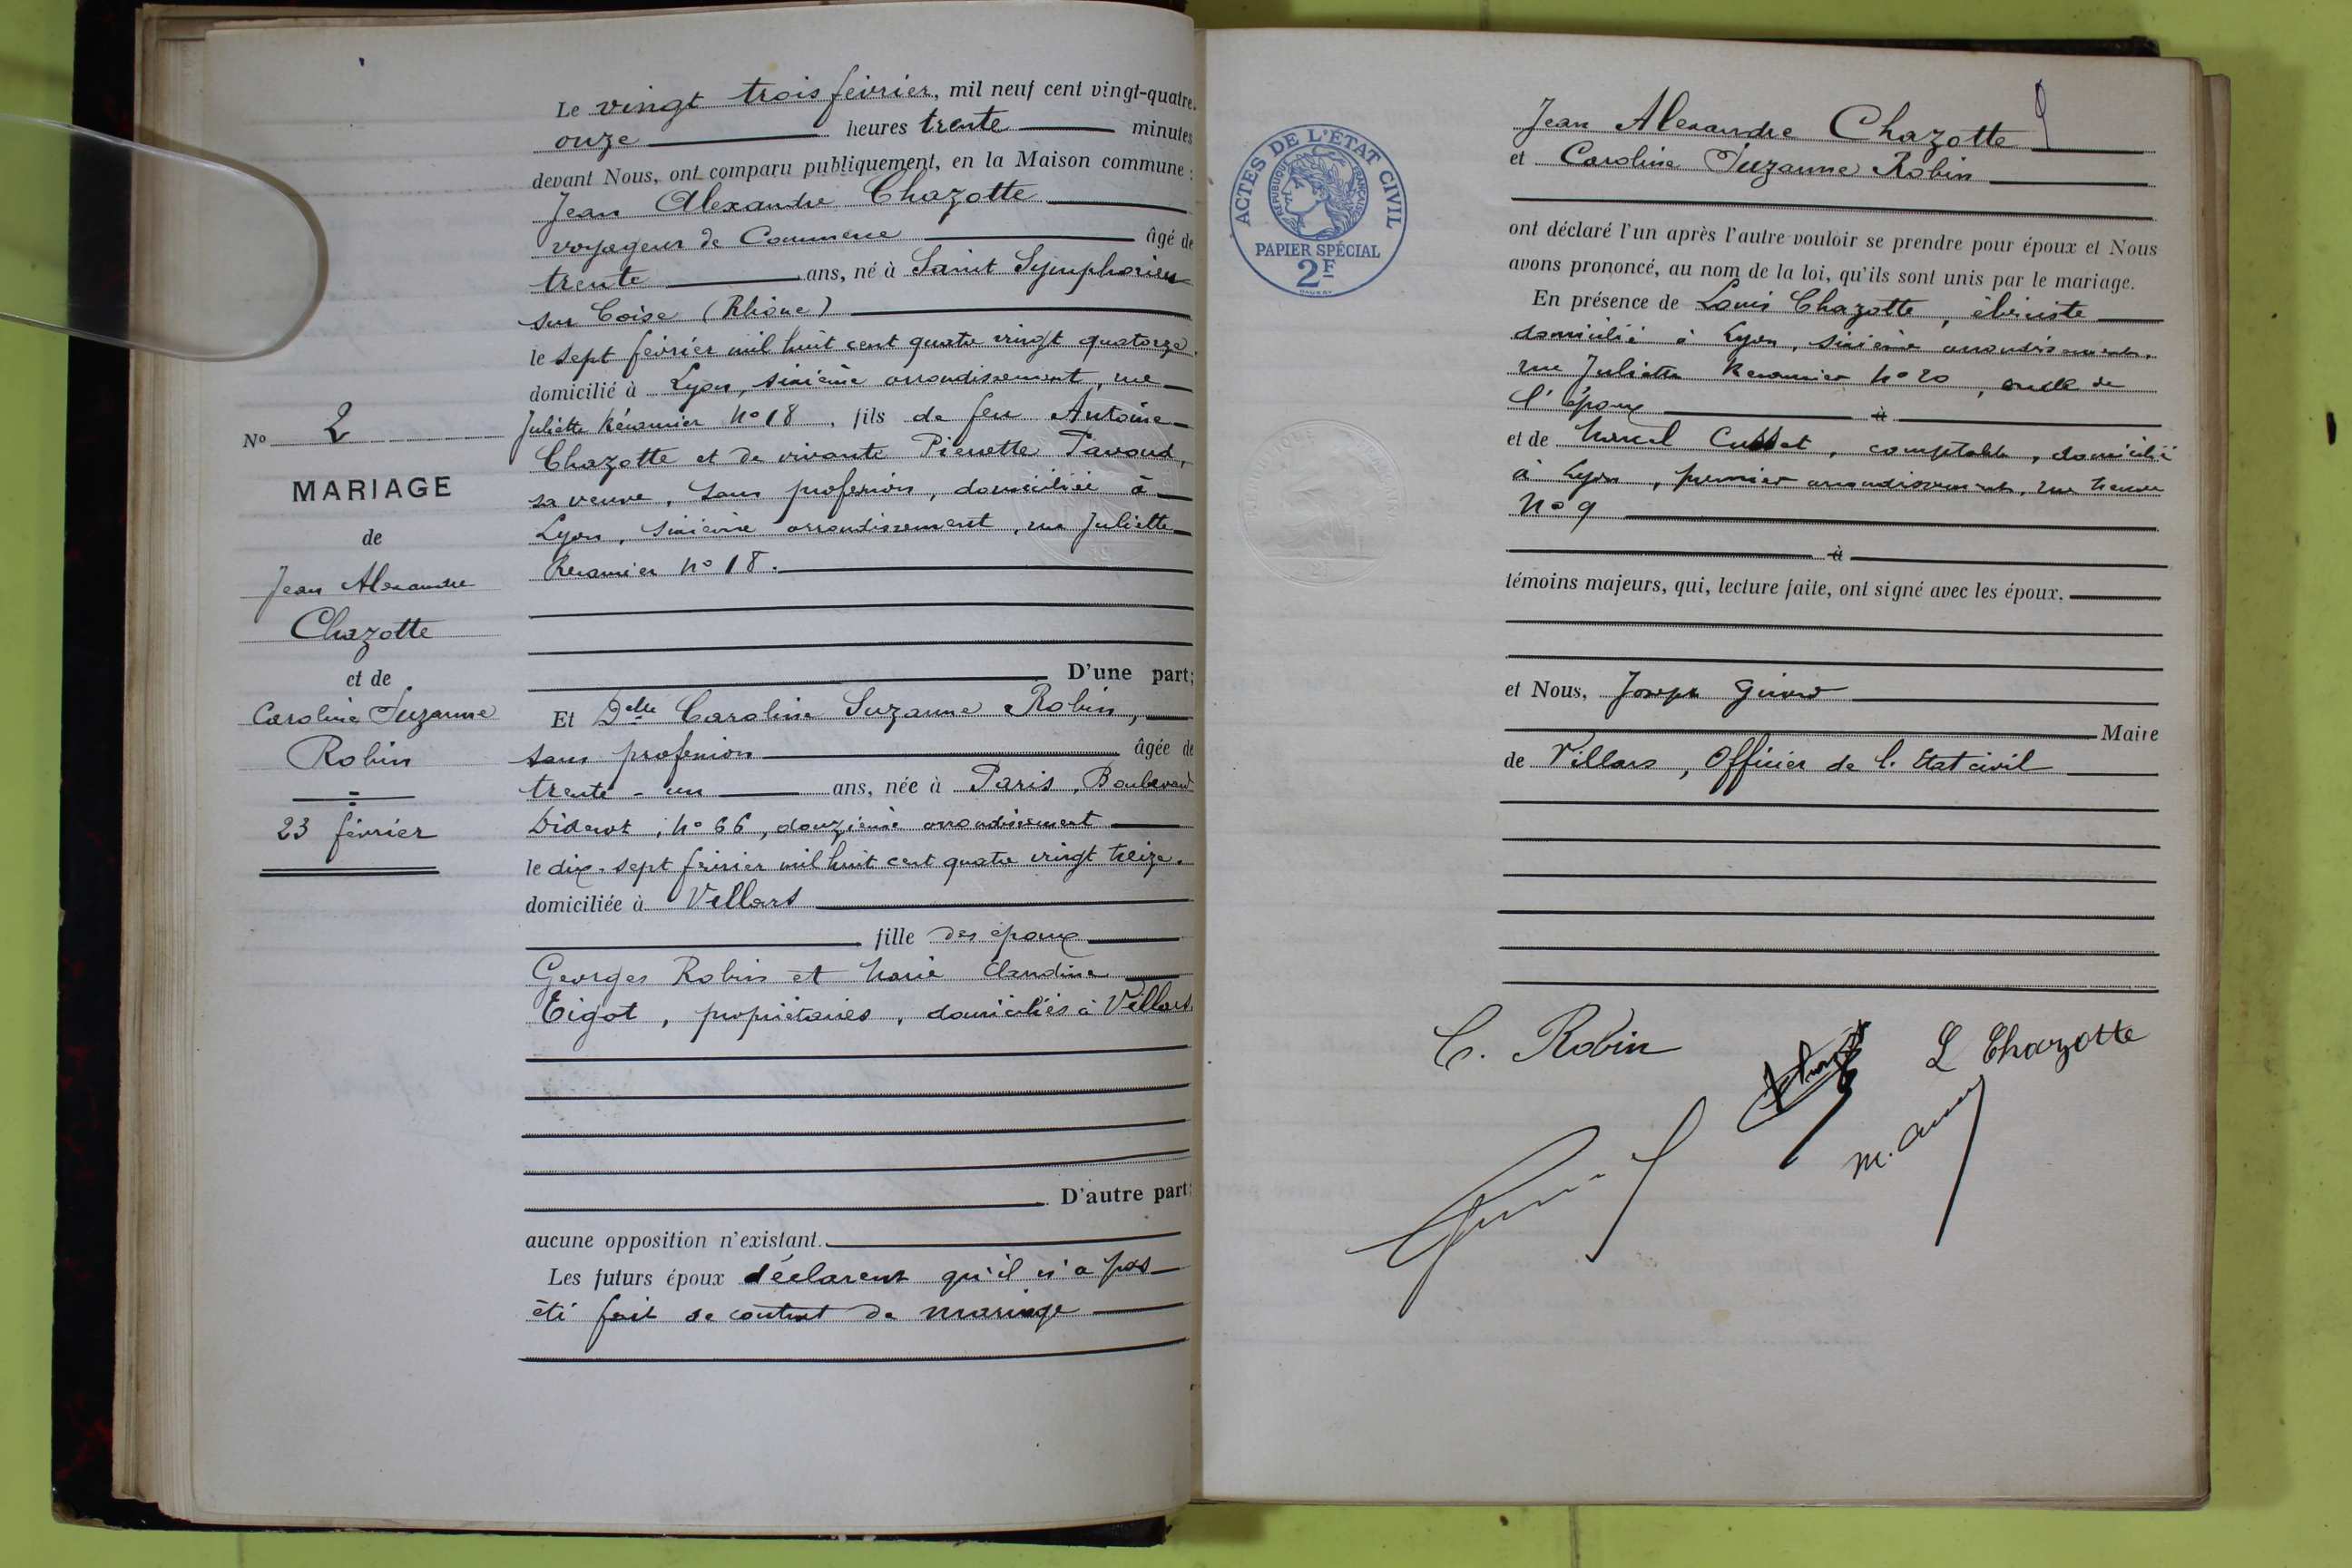 Le vingt trois février, mil neuf cent vingt-quatre.
onze heures trente minutes
devant Nous, ont comparu publiquement, en la Maison commune :
Jean Alexandre Chazotte
voyageur de Commerce âgé de
trente ans, né à Saint Symphorien
sur Coise (Rhône)
le sept février mil huit cent quatre vingt quatorze.
domicilié à Lyon, sixième arrondissement, rue
Juliette Récamier No 18, fils de feu Antoine
Chazotte et de vivante Pierrette Pavoud,
sa veuve, sans profession, domiciliée à
Lyon, sixième arrondissement, rue Juliette
Récamier No 18.
D'une part;
Et Delle Caroline Suzanne Robin,
sans profession âgée de
trente-un ans, née à Paris, Boulevard
Diderot, No 66, douzième arrondissement
le dix-sept février mil huit cent quatre vingt treize.
domiciliée à Villars
fille des époux
Georges Robin et Marie Claudine
Tigot, propriétaires, domiciliés à Villars.
D'autre part;
aucune opposition n'existant.
Les futurs époux déclarent qu'il n'a pas
été fait de contrat de mariage
No 2
MARIAGE
de
Jean Alexandre
Chazotte
et de
Caroline Suzanne
Robin
23 février
ACTES DE L'ÉTAT CIVIL
RÉPUBLIQUE FRANÇAISE
PAPIER SPÉCIAL
2F
Jean Alexandre Chazotte
et Caroline Suzanne Robin
ont déclaré l'un après l'autre vouloir se prendre pour époux et Nous
avons prononcé, au nom de la loi, qu'ils sont unis par le mariage.
En présence de Louis Chazotte, ébéniste
domicilié à Lyon, sixième arrondissement,
rue Juliette Récamier No 20, oncle de
l'époux à
et de Marcel Cusset, comptable, domicilié
à Lyon, premier arrondissement, rue
No 9
à
témoins majeurs, qui, lecture faite, ont signé avec les époux.
et Nous, Joseph Girard
Maire
de Villars, Officier de l'Etat civil
C. Robin
L Chazotte